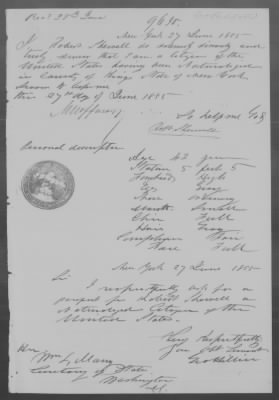 9695.
New York 27 June 1855
I Robert Sherwell do solemnly sincerely and
truly swear that I am a Citizen of the
United States having been Naturalized
in County of Kings State of New York
Sworn to before me
this 27th day of June 1855
So help me God
Personal description
Age 42 years
Stature 5 feet 5
Forehead High
Eyes Grey
Nose Ordinary
Mouth Small
Chin Full
Hair Grey
Complexion Fair
Face Full
New York 27 June 1855
Sir
I respectfully ask for a
passport for Robert Sherwell a
Naturalized Citizen of the
United States
Very Respectfully
Your Obt Servant
Hon
Wm L Marcy
Secretary of State
Washington